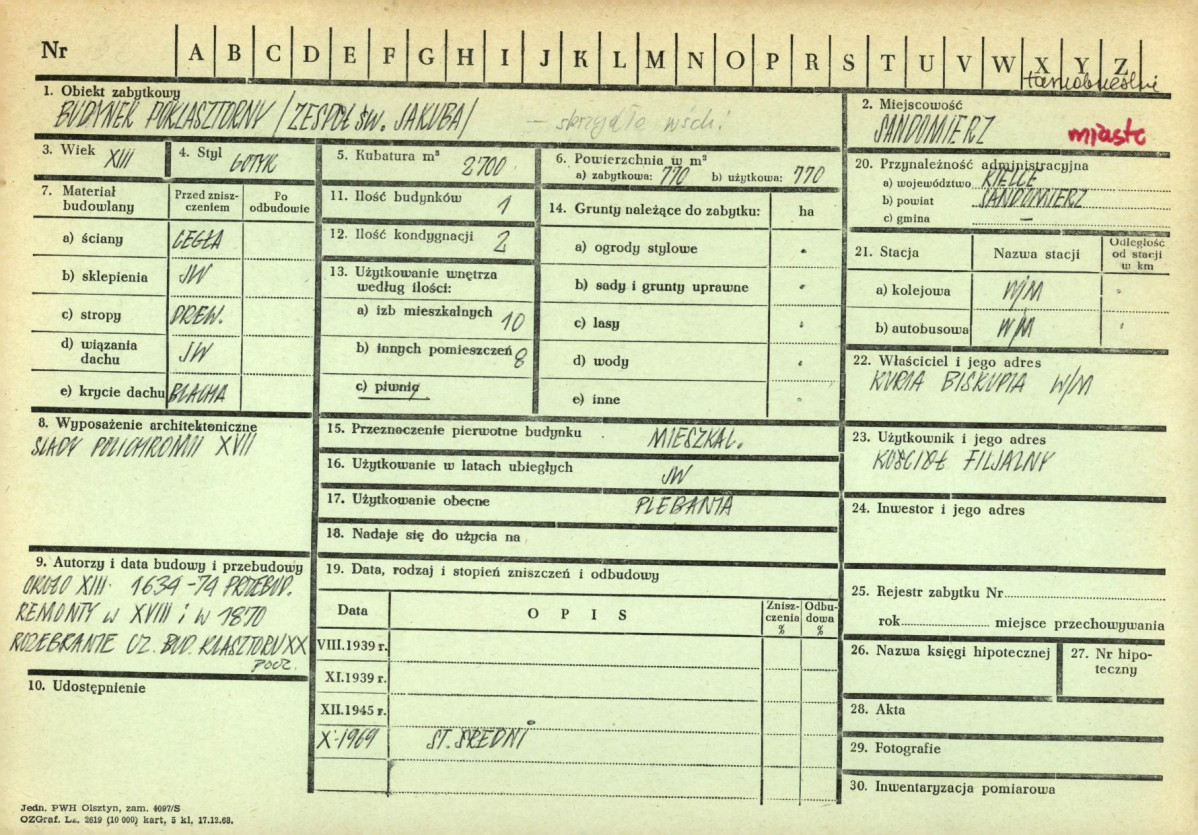 Nr A B C D E F G H I J K L M N O P R S T U V W X Y Z
tarnobrzeskie
1. Obiekt zabytkowy
BUDYNEK POKLASZTORNY /ZESPÓŁ ŚW. JAKUBA/ - skrzydło wsch.
2. Miejscowość
SANDOMIERZ miasto
3. Wiek XIII
4. Styl GOTYK
5. Kubatura m³ 2700
6. Powierzchnia w m²
a) zabytkowa: 770 b) użytkowa: 770
20. Przynależność administracyjna
a) województwo KIELCE
b) powiat SANDOMIERZ
c) gmina —
7. Materiał budowlany
Przed zniszczeniem
Po odbudowie
a) ściany CEGŁA
b) sklepienia JW
c) stropy DREW.
d) wiązania dachu JW
e) krycie dachu BLACHA
11. Ilość budynków 1
12. Ilość kondygnacji 2
13. Użytkowanie wnętrza
według ilości:
a) izb mieszkalnych 10
b) innych pomieszczeń 8
c) piwnic
14. Grunty należące do zabytku: ha
a) ogrody stylowe
b) sady i grunty uprawne
c) lasy
d) wody
e) inne
21. Stacja Nazwa stacji Odległość od stacji w km
a) kolejowa W/M
b) autobusowa W/M
22. Właściciel i jego adres
KURIA BISKUPIA W/M
8. Wyposażenie architektoniczne
ŚLADY POLICHROMII XVII
15. Przeznaczenie pierwotne budynku MIESZKAL.
16. Użytkowanie w latach ubiegłych JW
17. Użytkowanie obecne PLEBANIA
18. Nadaje się do użycia na
23. Użytkownik i jego adres
KOŚCIÓŁ FILJALNY
24. Inwestor i jego adres
9. Autorzy i data budowy i przebudowy
OKOŁO XIII 1634-74 PRZEBUD.
REMONTY w XVIII i w 1870
ROZEBRANIE CZ. BUD. KLASZTORU XX
POCZ.
10. Udostępnienie
19. Data, rodzaj i stopień zniszczeń i odbudowy
Data OPIS Zniszczenia % Odbudowa %
VIII.1939 r.
XI.1939 r.
XII.1945 r.
X.1969 ST. ŚREDNI
25. Rejestr zabytku Nr
rok miejsce przechowywania
26. Nazwa księgi hipotecznej
27. Nr hipoteczny
28. Akta
29. Fotografie
30. Inwentaryzacja pomiarowa
Jedn. PWH Olsztyn, zam. 4097/S
OZGraf. Lz. 2619 (10 000) kart, 5 kl. 17.12.68.